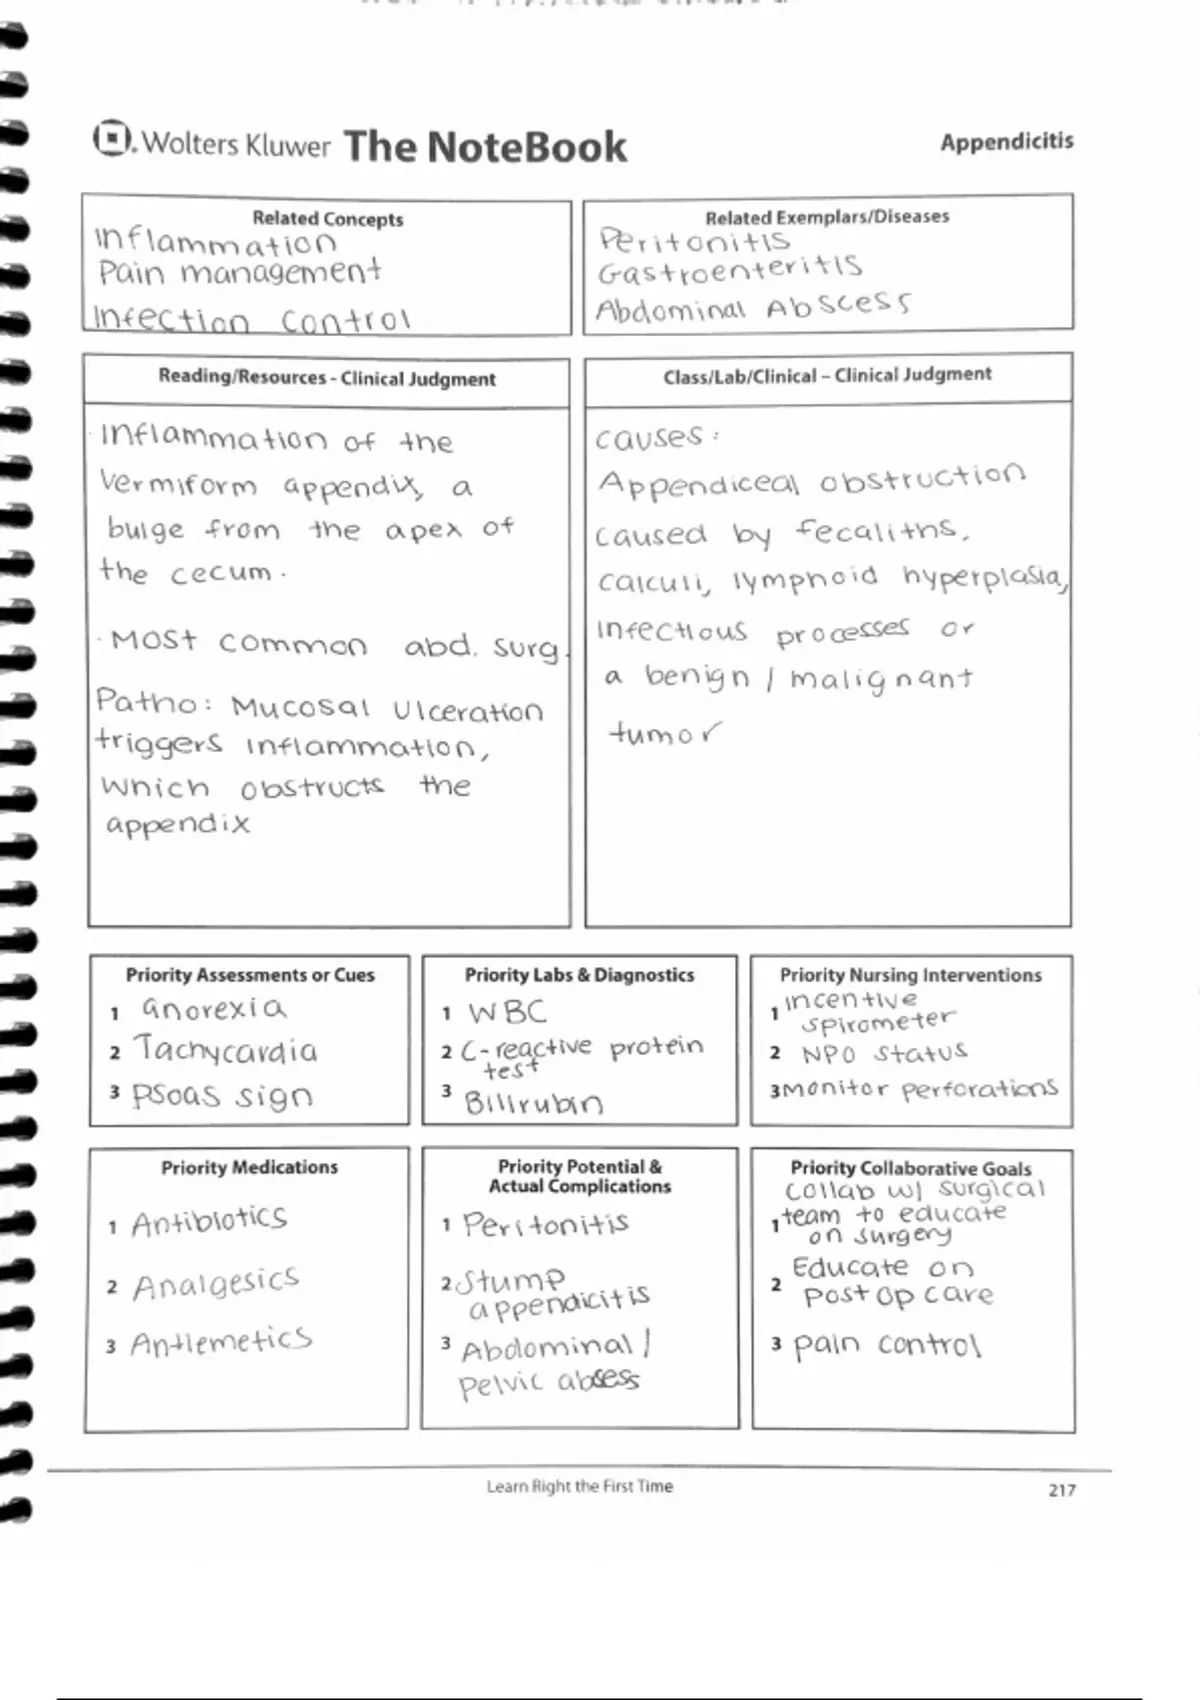 Wolters Kluwer The NoteBook
Appendicitis
Related Concepts
Inflammation
Pain management
Infection control
Related Exemplars/Diseases
Peritonitis
Gastroenteritis
Abdominal Abscess
Reading/Resources - Clinical Judgment
· Inflammation of the
vermiform appendix, a
bulge from the apex of
the cecum.
· Most common abd. surg.
Patho: Mucosal Ulceration
triggers inflammation,
which obstructs the
appendix
Class/Lab/Clinical – Clinical Judgment
causes:
Appendiceal obstruction
caused by fecaliths,
calculi, lymphoid hyperplasia,
infectious processes or
a benign / malignant
tumor
Priority Assessments or Cues
1 anorexia
2 Tachycardia
3 psoas sign
Priority Labs & Diagnostics
1 WBC
2 C-reactive protein
test
3 Bilirubin
Priority Nursing Interventions
1 incentive
spirometer
2 NPO status
3 monitor perforations
Priority Medications
1 Antibiotics
2 Analgesics
3 Antiemetics
Priority Potential &
Actual Complications
1 Peritonitis
2 Stump
appendicitis
3 Abdominal /
pelvic absess
Priority Collaborative Goals
Collab w/ surgical
1 team to educate
on surgery
Educate on
2 post op care
3 pain control
Learn Right the First Time
217